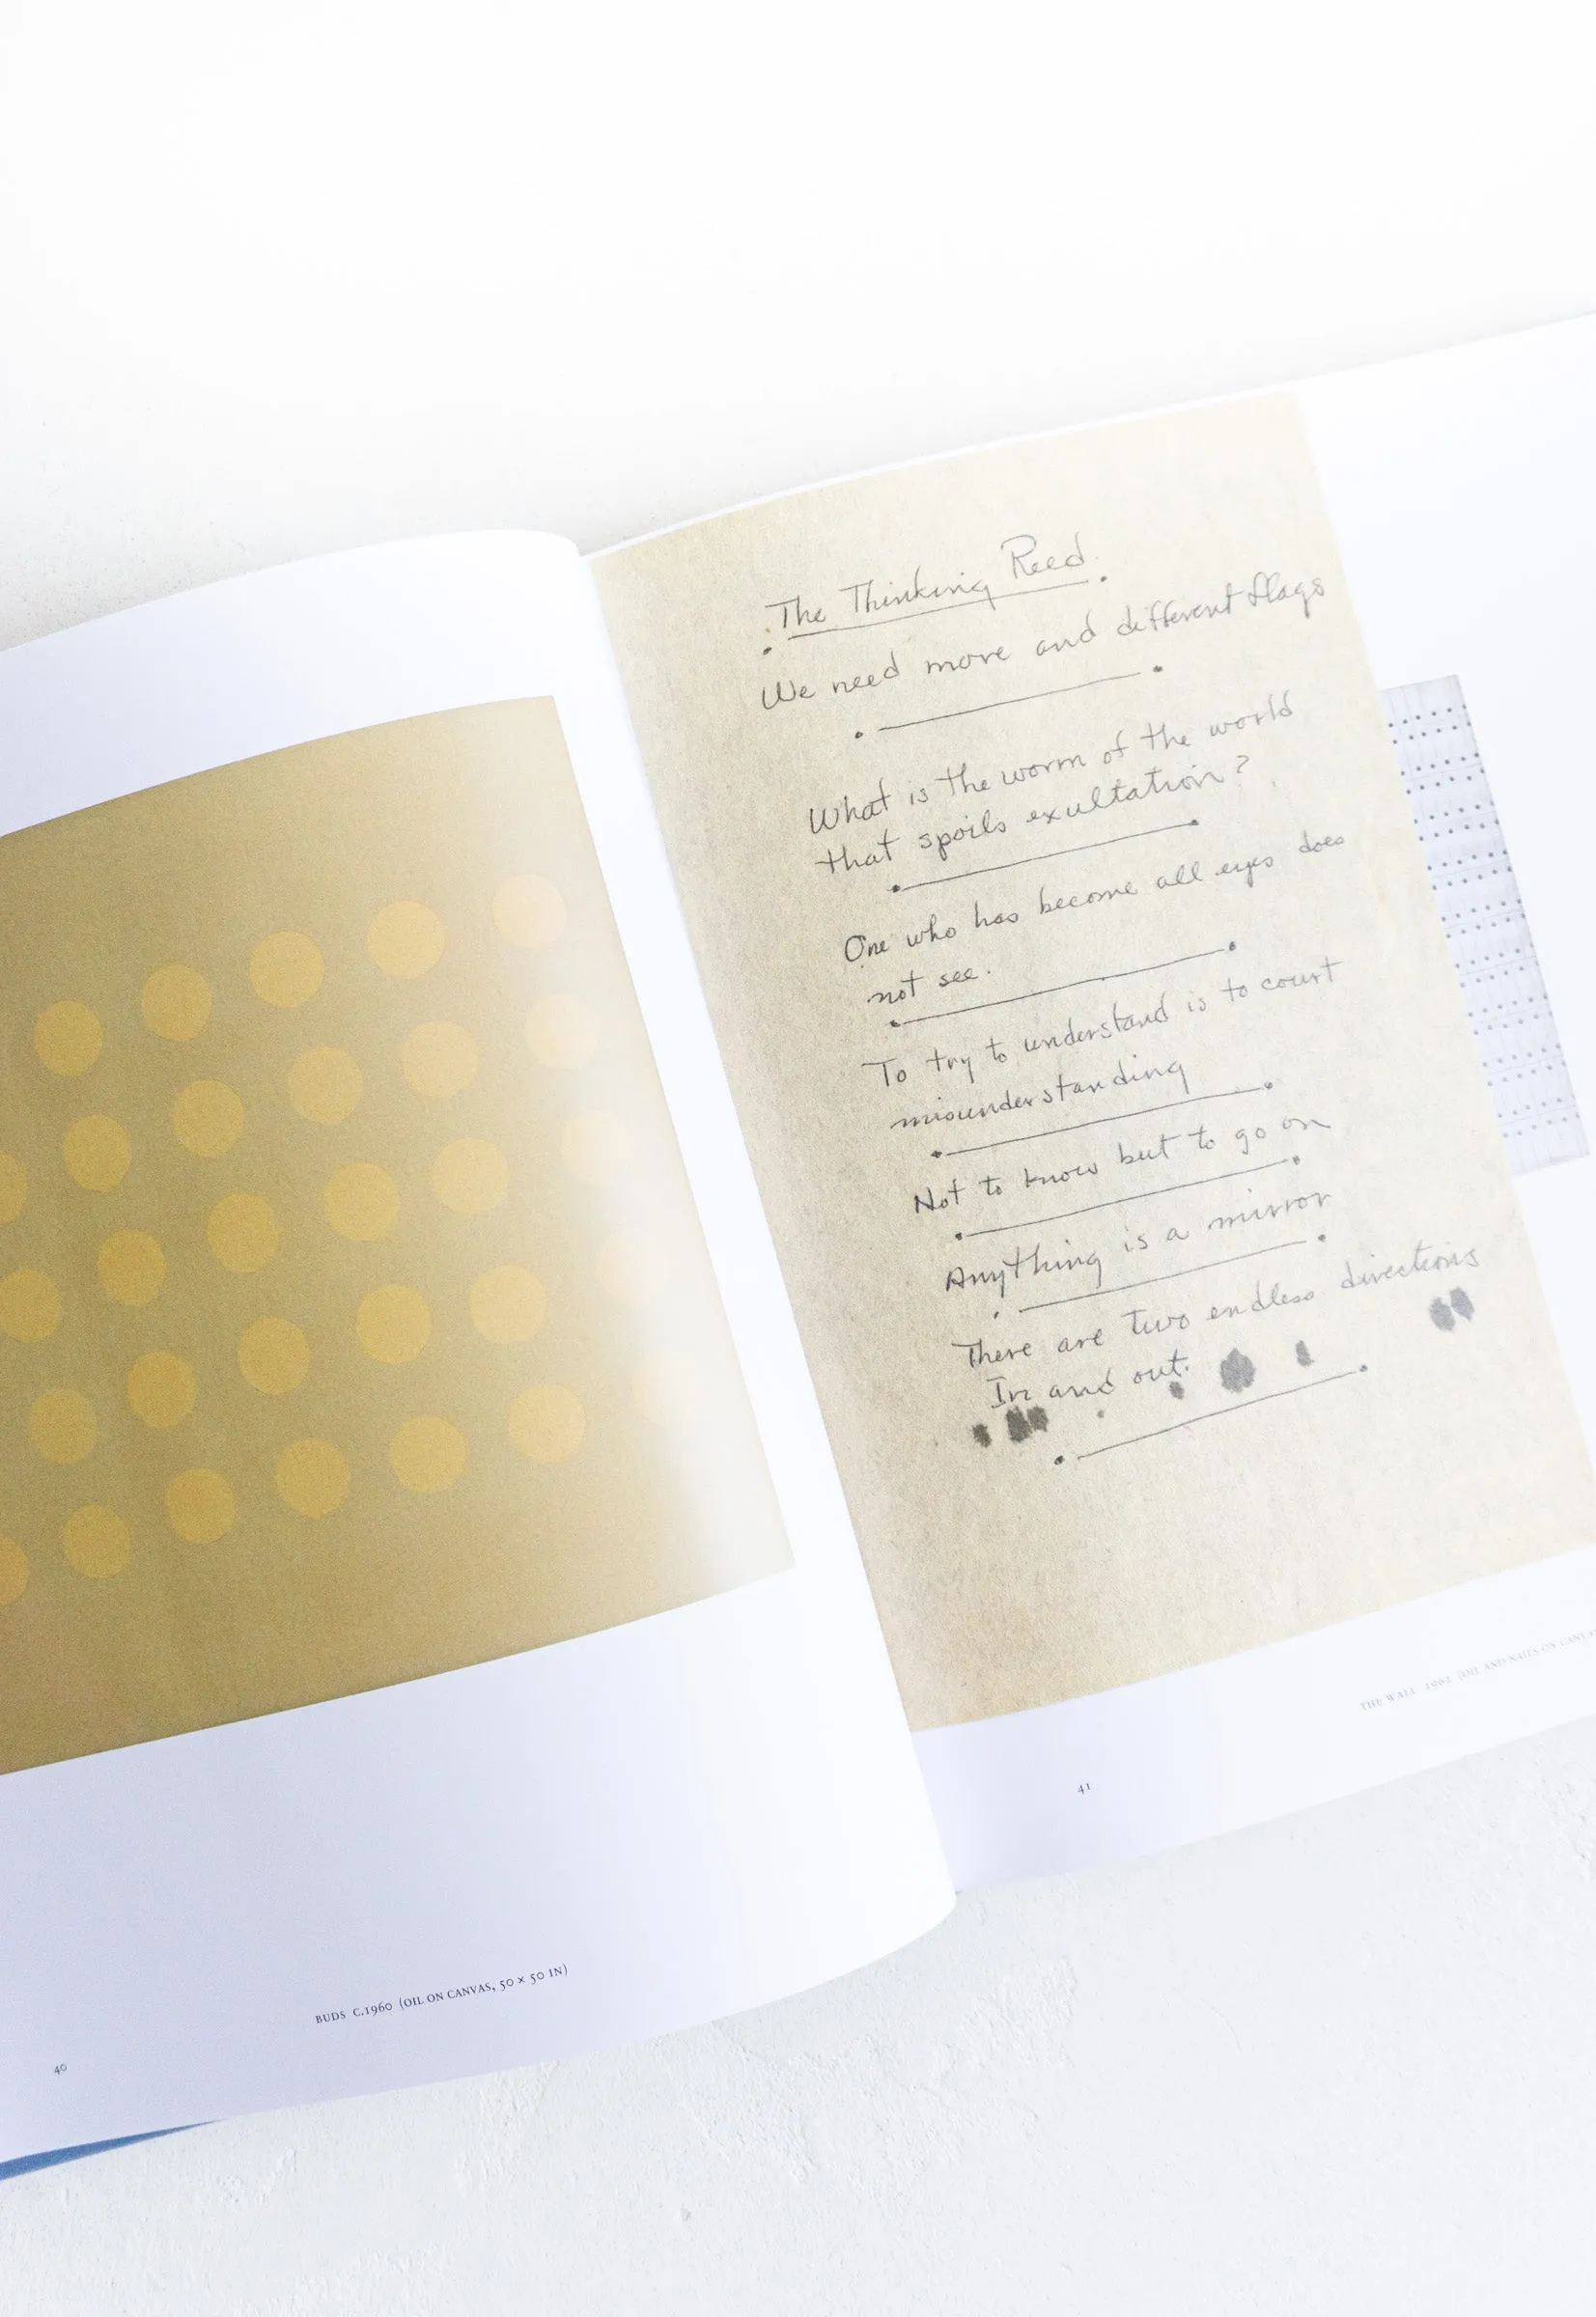 The Thinking Reed
We need more and different flags
What is the worm of the world
that spoils exultation?
One who has become all eyes does
not see.
To try to understand is to court
misunderstanding
Not to know but to go on
Anything is a mirror
There are two endless directions
In and out.
BUDS C.1960 (OIL ON CANVAS, 50 × 50 IN)
40
THE WALL 1962 (OIL AND NAILS ON CANVAS
41